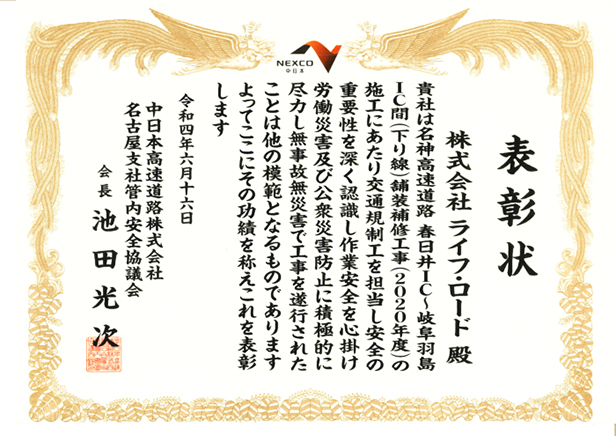 NEXCO
中日本
表彰状
株式会社 ライフ・ロード 殿
貴社は名神高速道路 春日井IC～岐阜羽島
IC間(下り線)舗装補修工事(2020年度)の
施工にあたり交通規制工を担当し安全の
重要性を深く認識し作業安全を心掛け
労働災害及び公衆災害防止に積極的に
尽力し無事故無災害で工事を遂行された
ことは他の模範となるものであります
よってここにその功績を称えこれを表彰
します
令和四年六月十六日
中日本高速道路株式会社
名古屋支社管内安全協議会
会長 池田光次